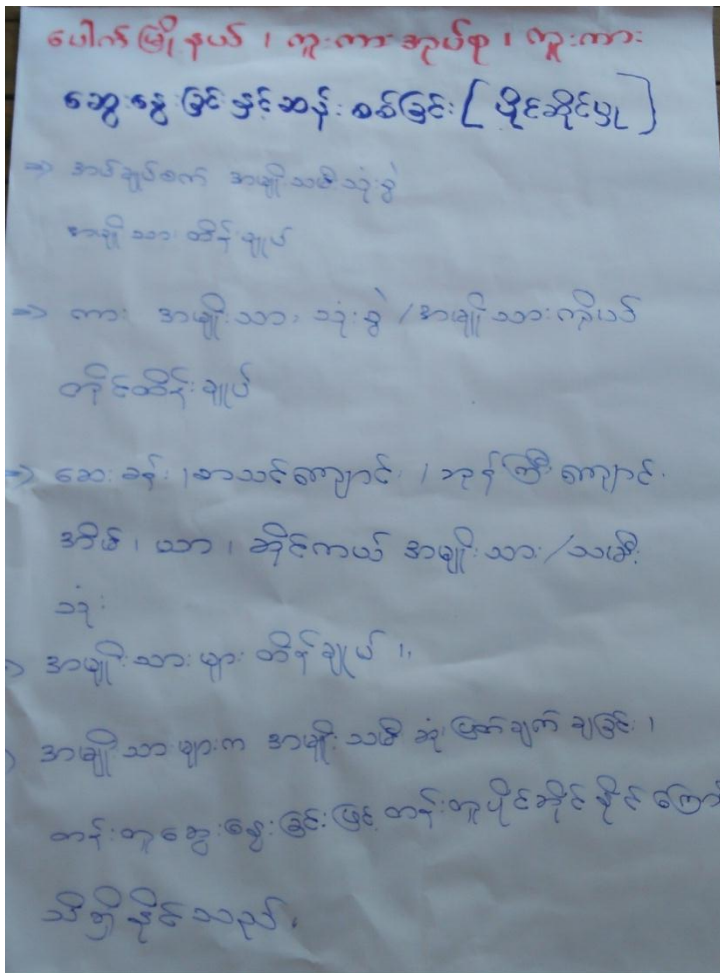 ပေါက်မြို့နယ် ၊ ကူးကားအုပ်စု ၊ ကူးကား
ဆွေးနွေးခြင်းနှင့်ဆန်းစစ်ခြင်း [ ပိုင်ဆိုင်မှု ]
⇒ အပ်ချုပ်စက် အမျိုးသမီးသုံးစွဲ
အမျိုးသား ထိန်းချုပ်
⇒ ကား အမျိုးသား သုံးစွဲ / အမျိုးသားကိုယ်
တိုင်ထိန်းချုပ်
⇒ ဆေးခန်း ၊ စာသင်ကျောင်း ၊ ဘုန်းကြီးကျောင်း
အိမ် ၊ ယာ ၊ ဆိုင်ကယ် အမျိုးသား / သမီး
သုံး
အမျိုးသားများ ထိန်းချုပ် ။
အမျိုးသားများက အမျိုးသမီး ဆုံးဖြတ်ချက် ချခြင်း ၊
တန်းတူဆွေးနွေးခြင်းဖြင့် တန်းတူပိုင်ဆိုင်နိုင်ကြော
သိရှိနိုင်သည်.